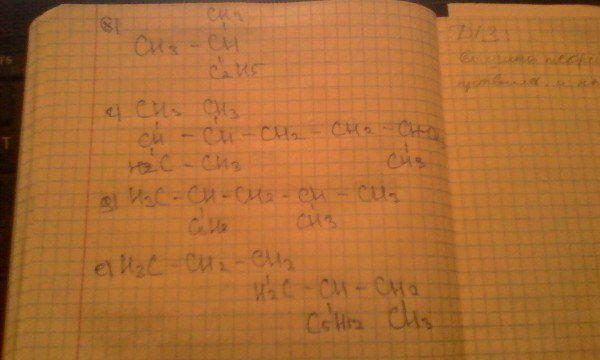 в)
CH3
CH3 - CH
C2H5
г) CH3 CH3
CH - CH - CH2 - CH2 - CH-CH3
H2C - CH3 CH3
H3C - CH - CH2 - CH - CH3
CH3
е) H3C - CH2 - CH2
H2C - CH - CH2
C5H12 CH3
Д/З: